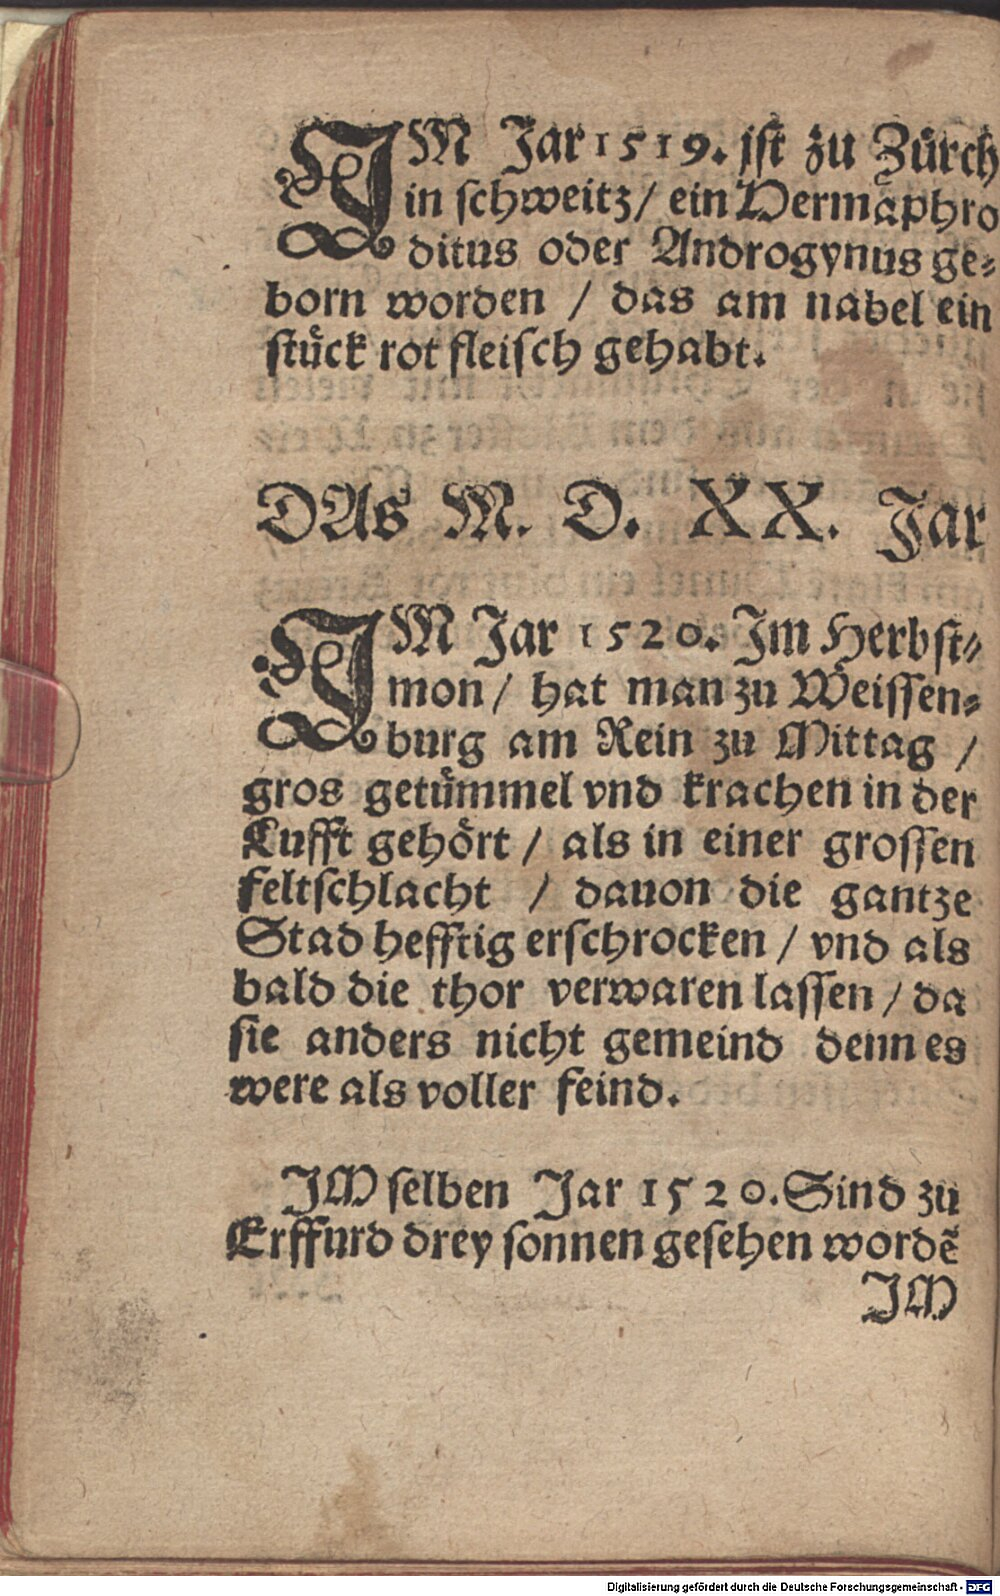 IM Jar 1519. jst zu Zürch
in schweitz/ ein Hermaphro
ditus oder Androgynus ge⸗
born worden / das am nabel ein
stuͤck rot fleisch gehabt.
DAs M. D. XX. Jar
IM Jar 1520. Im Herbst⸗
mon/ hat man zu Weissen⸗
burg am Rein zu Mittag /
gros getuͤmmel vnd krachen in der
Lufft gehoͤrt / als in einer grossen
feltschlacht / dauon die gantze
Stad hefftig erschrocken / vnd als
bald die thor verwaren lassen / da
sie anders nicht gemeind denn es
were als voller feind.
IM selben Jar 1520. Sind zu
Erffurd drey sonnen gesehen wordẽ
IM
Digitalisierung gefördert durch die Deutsche Forschungsgemeinschaft - DFG